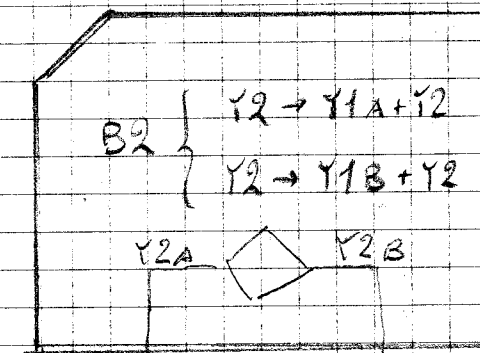 B2 { Y2 → Y1A + Y2
Y2 → Y1B + Y2
Y2A Y2B